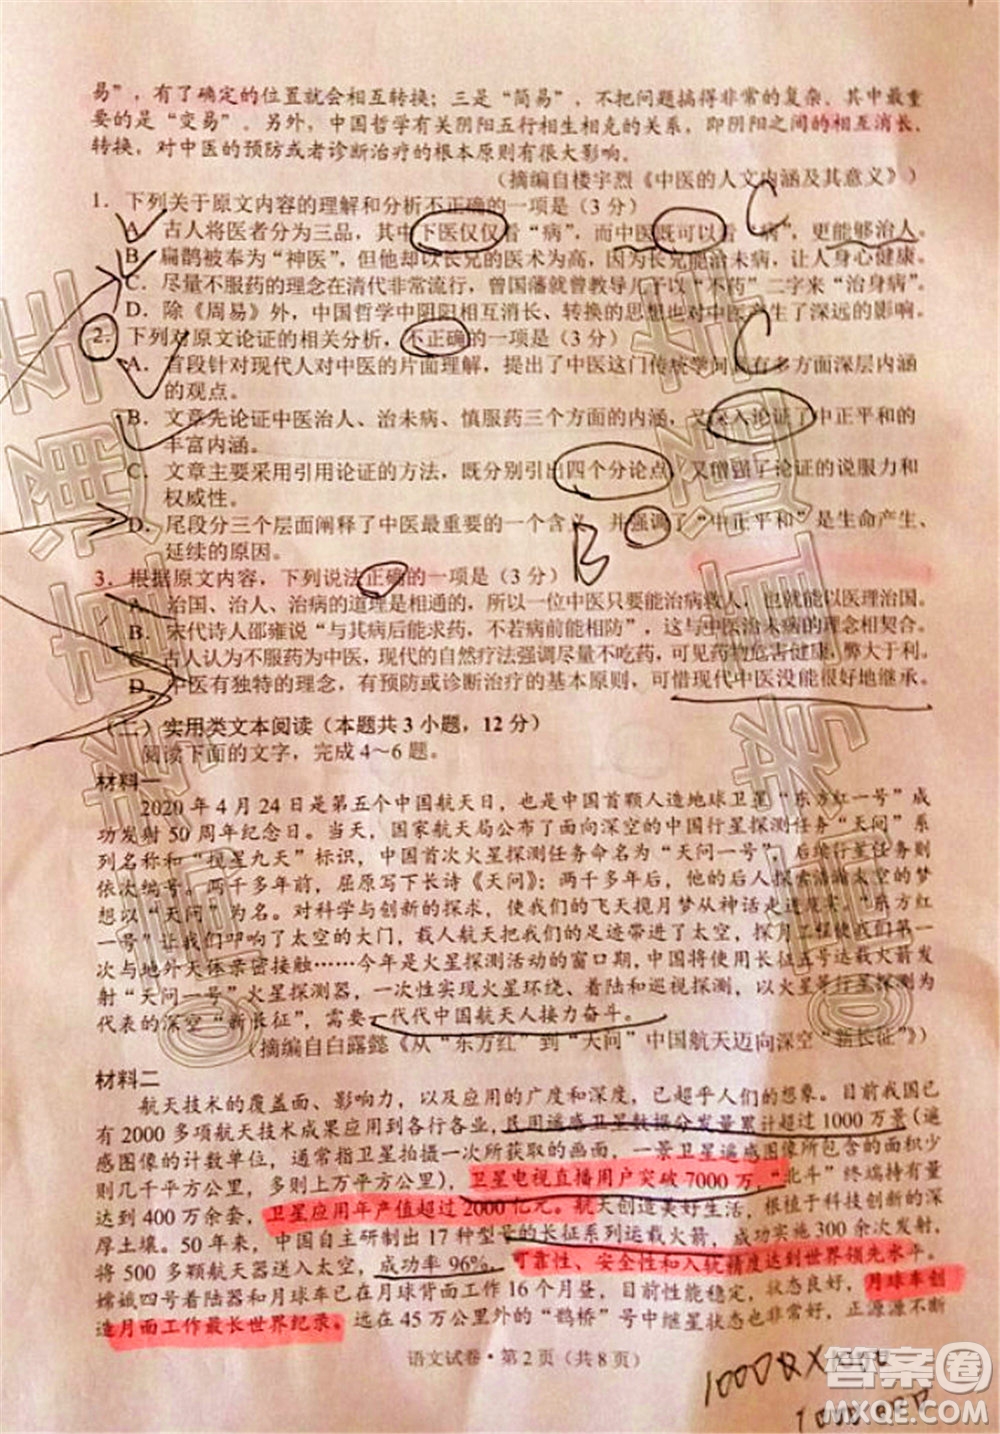 易”，有了确定的位置就会相互转换；三是“简易”，不把问题搞得非常的复杂，其中最重
要的是“变易”。另外，中国哲学有关阴阳五行相生相克的关系，即阴阳之间的相互消长、
转换，对中医的预防或者诊断治疗的根本原则有很大影响。
（摘编自楼宇烈《中医的人文内涵及其意义》）
1．下列关于原文内容的理解和分析不正确的一项是（3分）
C
A．古人将医者分为三品，其中下医仅仅看“病”，而中医既可以看“病”，更能够治人。
B．扁鹊被奉为“神医”，但他却以长兄的医术为高，因为长兄能治未病，让人身心健康。
C．尽量不服药的理念在清代非常流行，曾国藩就曾教导儿子以“不药”二字来“治身病”。
D．除《周易》外，中国哲学中阴阳相互消长、转换的思想也对中医产生了深远的影响。
2．下列对原文论证的相关分析，不正确的一项是（3分）
C
A．首段针对现代人对中医的片面理解，提出了中医这门传统学问具有多方面深层内涵
的观点。
B．文章先论证中医治人、治未病、慎服药三个方面的内涵，又深入论证了中正平和的
丰富内涵。
C．文章主要采用引用论证的方法，既分别引出四个分论点，又增强了论证的说服力和
权威性。
D．尾段分三个层面阐释了中医最重要的一个含义，并强调了“中正平和”是生命产生、
延续的原因。
B
3．根据原文内容，下列说法正确的一项是（3分）
A．治国、治人、治病的道理是相通的，所以一位中医只要能治病救人，也就能以医理治国。
B．宋代诗人邵雍说“与其病后能求药，不若病前能相防”，这与中医治未病的理念相契合。
C．古人认为不服药为中医，现代的自然疗法强调尽量不吃药，可见药物危害健康，弊大于利。
D．中医有独特的理念，有预防或诊断治疗的基本原则，可惜现代中医没能很好地继承。
（二）实用类文本阅读（本题共3小题，12分）
阅读下面的文字，完成4～6题。
材料一
2020年4月24日是第五个中国航天日，也是中国首颗人造地球卫星“东方红一号”成
功发射50周年纪念日。当天，国家航天局公布了面向深空的中国行星探测任务“天问”系
列名称和“揽星九天”标识，中国首次火星探测任务命名为“天问一号”，后续行星任务
依次编号。两千多年前，屈原写下长诗《天问》；两千多年后，后人探索浩瀚星空
想以“天问”为名。对科学与创新的探求，使我们的飞天揽月梦从神话走进现实，“东方红
一号”让我们叩响了太空的大门，载人航天使得中国人的足迹进带进了太空，探月工程使得
天与地外天体亲密接触……今年是火星探测活动的窗口期，中国将使用长征五号运载火箭发
射“天问一号”火星探测器，一次性实现火星环绕、着陆和巡视探测，以火星和行星探测为
代表的深空“新长征”，需要一代代中国航天人接力奋斗。
（摘编自白露懿《从“东方红”到“天问”中国航天迈向深空“新长征”》）
材料二
航天技术的覆盖面、影响力，以及应用的广度和深度，已超乎人们的想象。目前我国已
有2000多项航天技术成果应用到各行各业，民用遥感卫星数据分发量累计超过1000万景（遥
感图像的计数单位，通常指卫星拍摄一次所获取的画面，一景卫星遥感图像所包含的面积少
则几千平方公里，多则上万平方公里），卫星电视直播用户突破7000万，“北斗”终端持有量
达到400万余套，卫星应用年产值超过2000亿元。航天创造美好生活，根植于科技创新的深
厚土壤。50年来，中国自主研制出17种型号的长征系列运载火箭，成功实施300余次发射，
将500多颗航天器送入太空，成功率96%，可靠性、安全性和入轨精度达到世界领先水平。
嫦娥四号着陆器和月球车已在月球背面工作16个月昼，目前性能稳定，状态良好，月球车创
造月面工作最长世界纪录。远在45万公里外的“鹊桥”号中继星状态也非常好，正源源不断
语文试卷·第2页（共8页）
答案圈
MXQE.COM